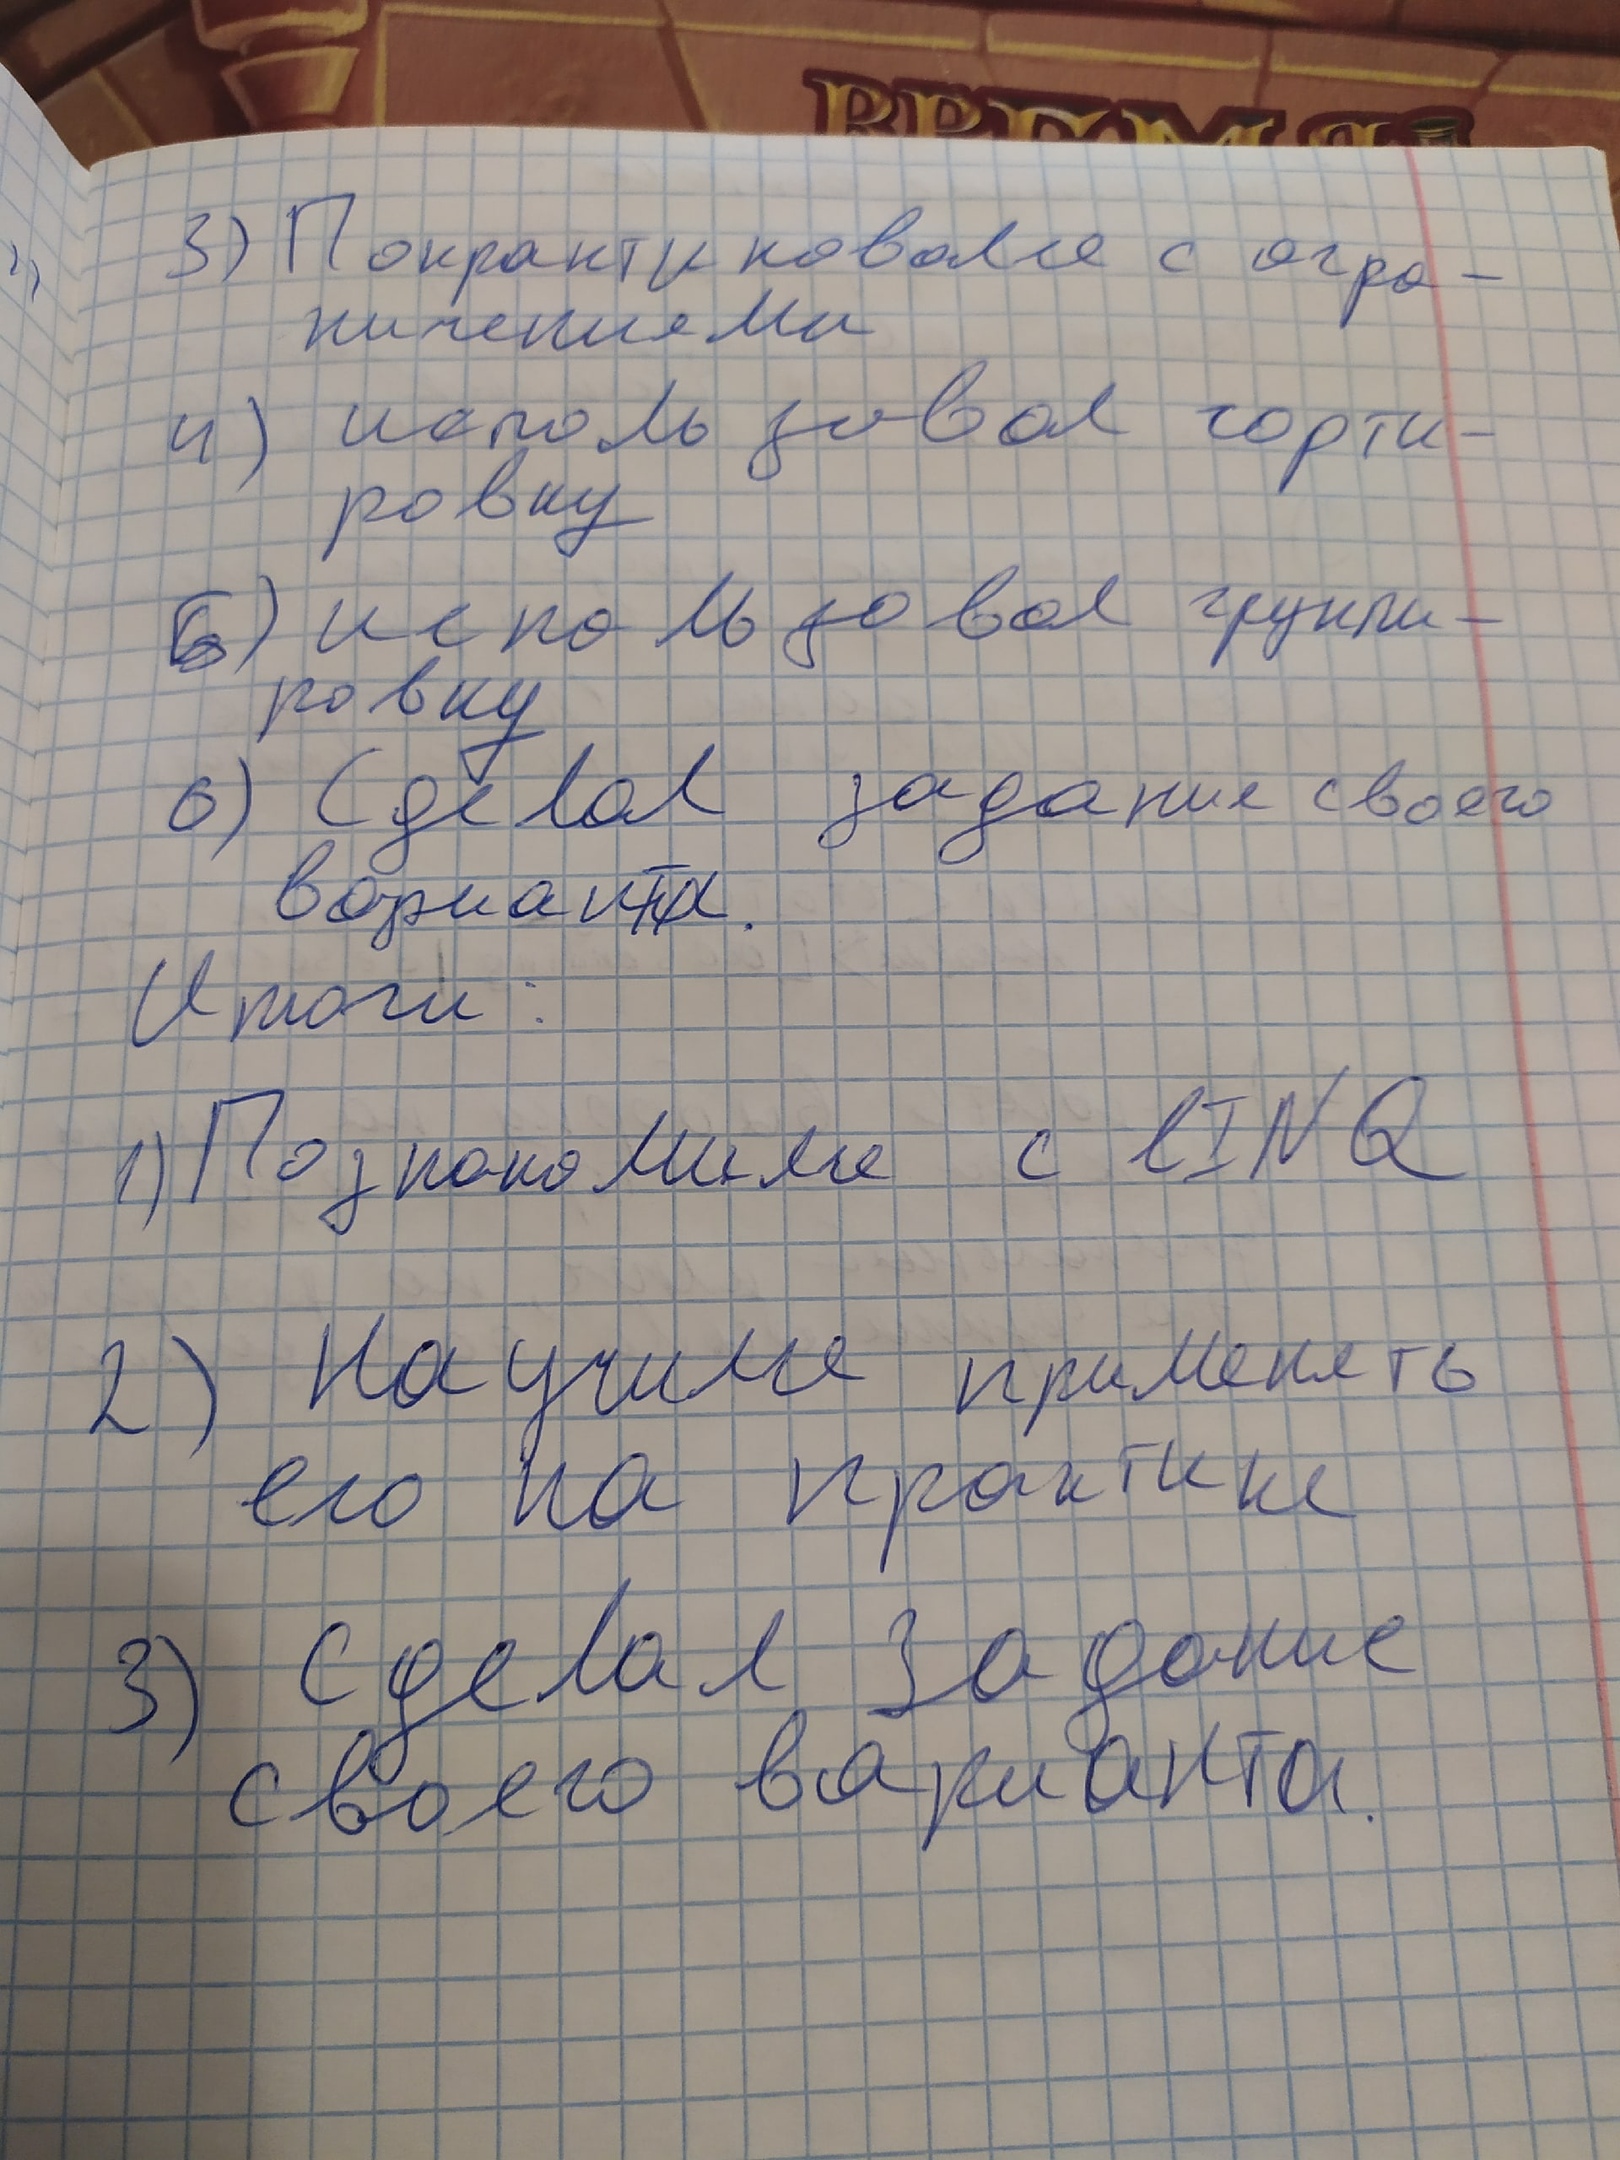 ВРЕМЯ
3) Попрактиковался с огра-
ничениями
4) использовал сорти-
ровку
5) использовал группи-
ровку
6) Сделал задание своего
варианта.
Итоги:
1) Познакомился с LINQ
2) Научился применять
его на практике
3) Сделал задание
своего варианта.